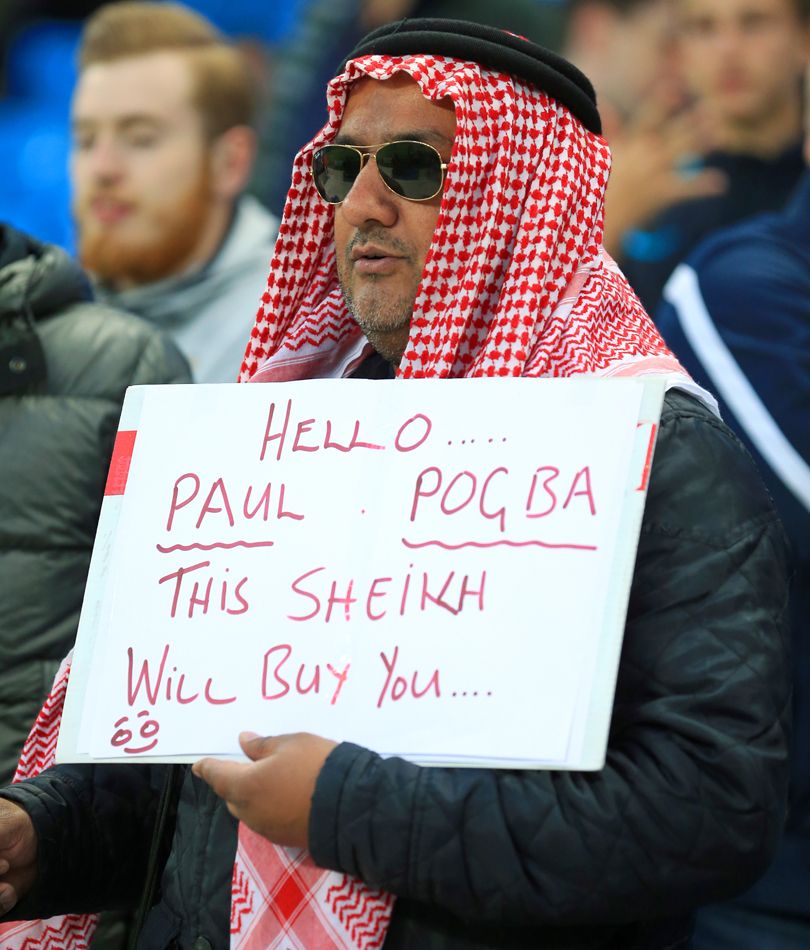 HELLO.....
PAUL . POGBA
THIS SHEIKH
WILL BUY YOU....